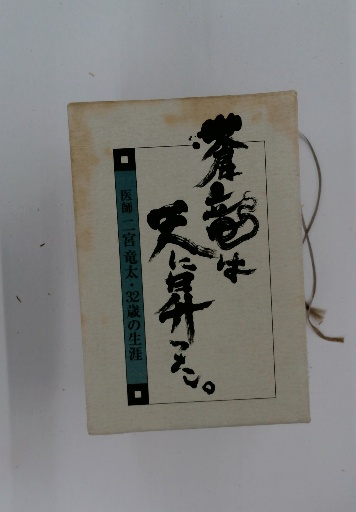 蒼竜は
天に昇った。
医師 二宮竜太・32歳の生涯